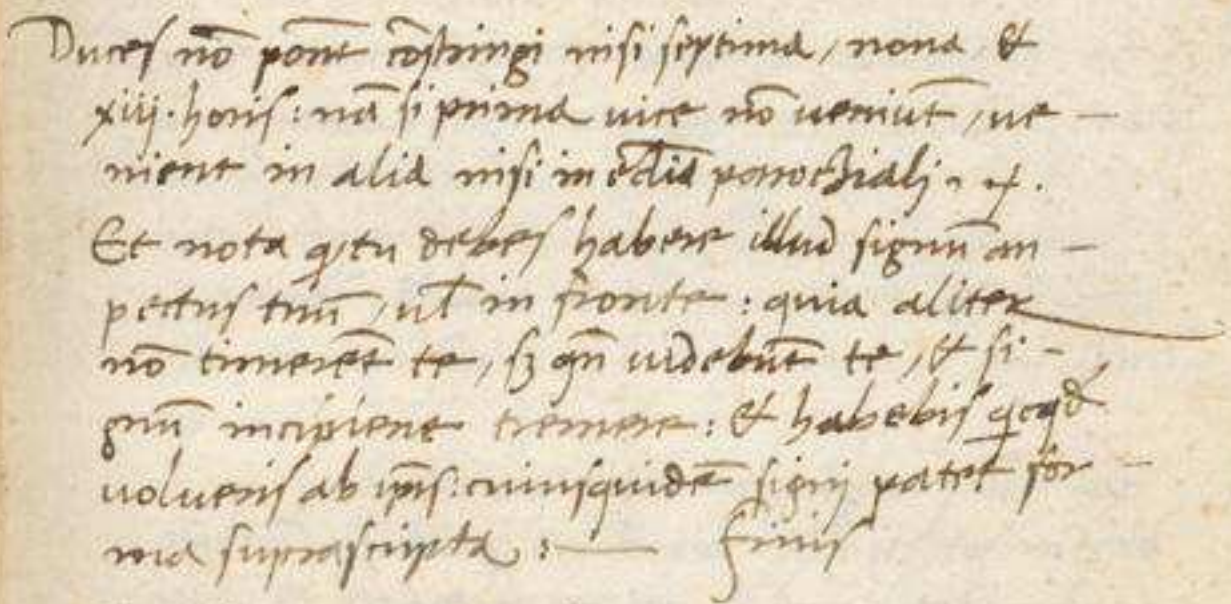 Duces nō pont̄ cōstringi nisi septima, nona, &
xiij. horis: nā si prima vice nō veniūt, ve-
nient in alia nisi in ędiā parochiali
Et nota ꝙ tu debes habere illud signū an-
pectus tuū, ul̄ in fronte: quia aliter
nō timerēt te, sꝫ qn̄ videbūt te, & si-
gnū incipient tremere: & habebis
volueris ab ip̄is: cuiusquidē signi patet for-
ma suprascripta: — finis